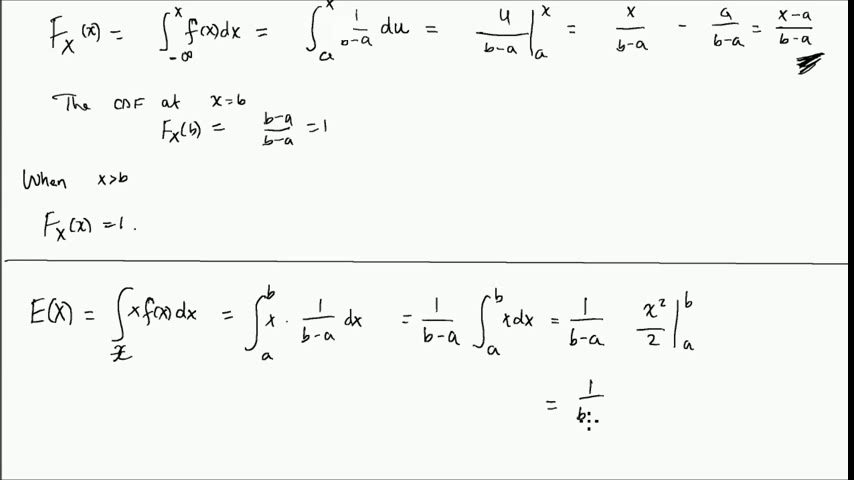 F_X(x) = ∫_{-∞}^{x} f(x)dx = ∫_{a}^{x} 1/(b-a) du = u/(b-a) |_{a}^{x} = x/(b-a) - a/(b-a) = (x-a)/(b-a)
The CDF at x=b
F_X(b) = (b-a)/(b-a) = 1
When x>b
F_X(x) = 1.
E(X) = ∫_{x} x f(x)dx = ∫_{a}^{b} x · 1/(b-a) dx = 1/(b-a) ∫_{a}^{b} x dx = 1/(b-a) x²/2 |_{a}^{b}
= 1/b